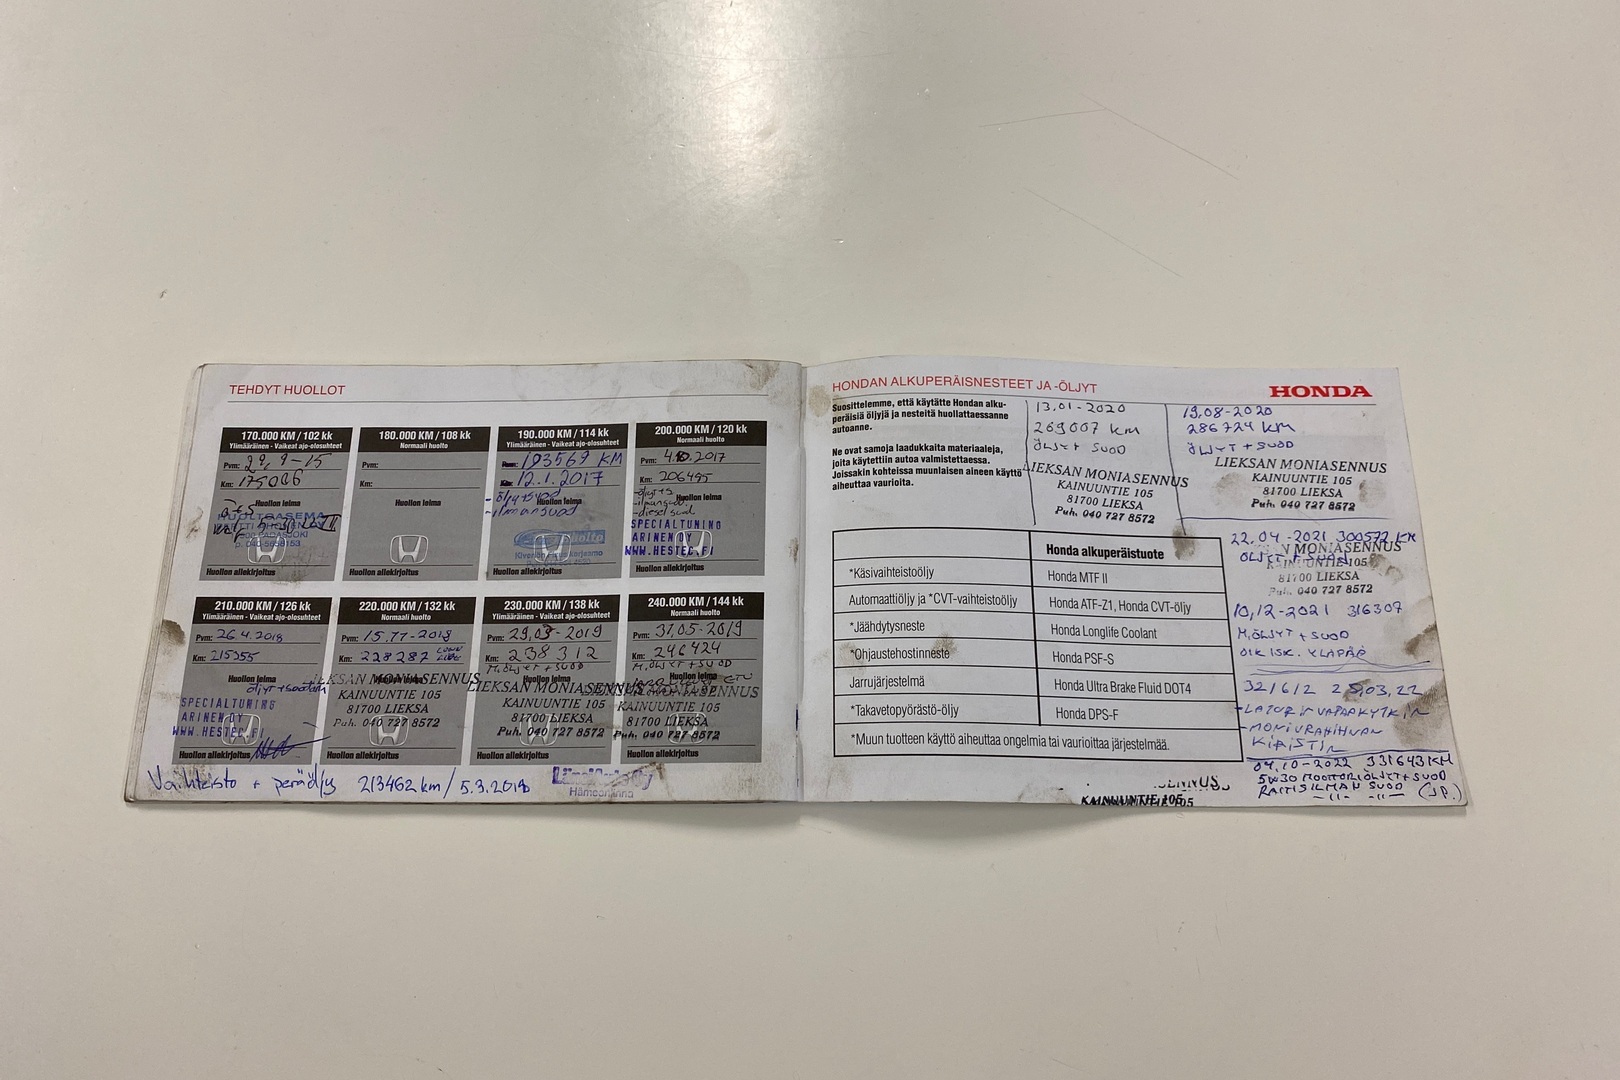 TEHDYT HUOLLOT
170.000 KM / 102 kk
Ylimääräinen - Vaikeat ajo-olosuhteet
Pvm: 29.9-15
Km: 175006
Huollon leima
HUOLTOASEMA
Huollon allekirjoitus
180.000 KM / 108 kk
Normaali huolto
Pvm:
Km:
Huollon leima
Huollon allekirjoitus
190.000 KM / 114 kk
Ylimääräinen - Vaikeat ajo-olosuhteet
193569 KM
12.1.2017
Huollon leima
- öljy+suod
- ilmansuod
Huollon allekirjoitus
200.000 KM / 120 kk
Normaali huolto
Pvm: 4.10.2017
Km: 206495
Huollon leima
- öljyt+s
- ilmansuod
- dieselsuod
SPECIALTUNING
ARINEN OY
WWW.HESTEC.FI
Huollon allekirjoitus
210.000 KM / 126 kk
Ylimääräinen - Vaikeat ajo-olosuhteet
Pvm: 26.4.2018
Km: 215355
Huollon leima
öljyt+suodatin
SPECIALTUNING
ARINEN OY
WWW.HESTEC.FI
Huollon allekirjoitus
220.000 KM / 132 kk
Normaali huolto
Pvm: 15.11-2018
Km: 228287
Huollon leima
LIEKSAN MONIASENNUS
KAINUUNTIE 105
81700 LIEKSA
Puh. 040 727 8572
Huollon allekirjoitus
230.000 KM / 138 kk
Ylimääräinen - Vaikeat ajo-olosuhteet
Pvm: 29.03-2019
Km: 238312
M.ÖLJYT + SUOD
Huollon leima
LIEKSAN MONIASENNUS
KAINUUNTIE 105
81700 LIEKSA
Puh. 040 727 8572
Huollon allekirjoitus
240.000 KM / 144 kk
Normaali huolto
Pvm: 31.05-2019
Km: 246424
M.ÖLJYT + SUOD
Huollon leima
MONIASENNUS
KAINUUNTIE 105
81700 LIEKSA
Puh. 040 727 8572
Huollon allekirjoitus
Vaihteisto + peräöljy 213462 km / 5.3.2018
Hämeenlinna
HONDAN ALKUPERÄISNESTEET JA -ÖLJYT
HONDA
Suosittelemme, että käytätte Hondan alku-
peräisiä öljyjä ja nesteitä huollattaessanne
autoanne.
Ne ovat samoja laadukkaita materiaaleja,
joita käytettiin autoa valmistettaessa.
Joissakin kohteissa muunlaisen aineen käyttö
aiheuttaa vaurioita.
13.01-2020
269007 KM
ÖLJYT + SUOD
LIEKSAN MONIASENNUS
KAINUUNTIE 105
81700 LIEKSA
Puh. 040 727 8572
19.08-2020
286724 KM
ÖLJYT + SUOD
LIEKSAN MONIASENNUS
KAINUUNTIE 105
81700 LIEKSA
Puh. 040 727 8572
Honda alkuperäistuote
*Käsivaihteistoöljy Honda MTF II
Automaattiöljy ja *CVT-vaihteistoöljy Honda ATF-Z1, Honda CVT-öljy
*Jäähdytysneste Honda Longlife Coolant
*Ohjaustehostinneste Honda PSF-S
Jarrujärjestelmä Honda Ultra Brake Fluid DOT4
*Takavetopyörästö-öljy Honda DPS-F
*Muun tuotteen käyttö aiheuttaa ongelmia tai vaurioittaa järjestelmää.
22.04-2021 300572 KM
ÖLJYT + SUOD
MONIASENNUS
81700 LIEKSA
Puh. 040 727 8572
10.12-2021 316307
M.ÖLJYT + SUOD
OIK ISK. YLÄPÄÄ
321612 25.03.22
- LATURIN VAPAAKYTKIN
- MONIURAHIHNAN
KIRISTIN
04.10-2022 331643 KM
5W30 MOOTTORIÖLJYT + SUOD
RAITISILMAN SUOD (J.P.)
KAINUUNTIE 105